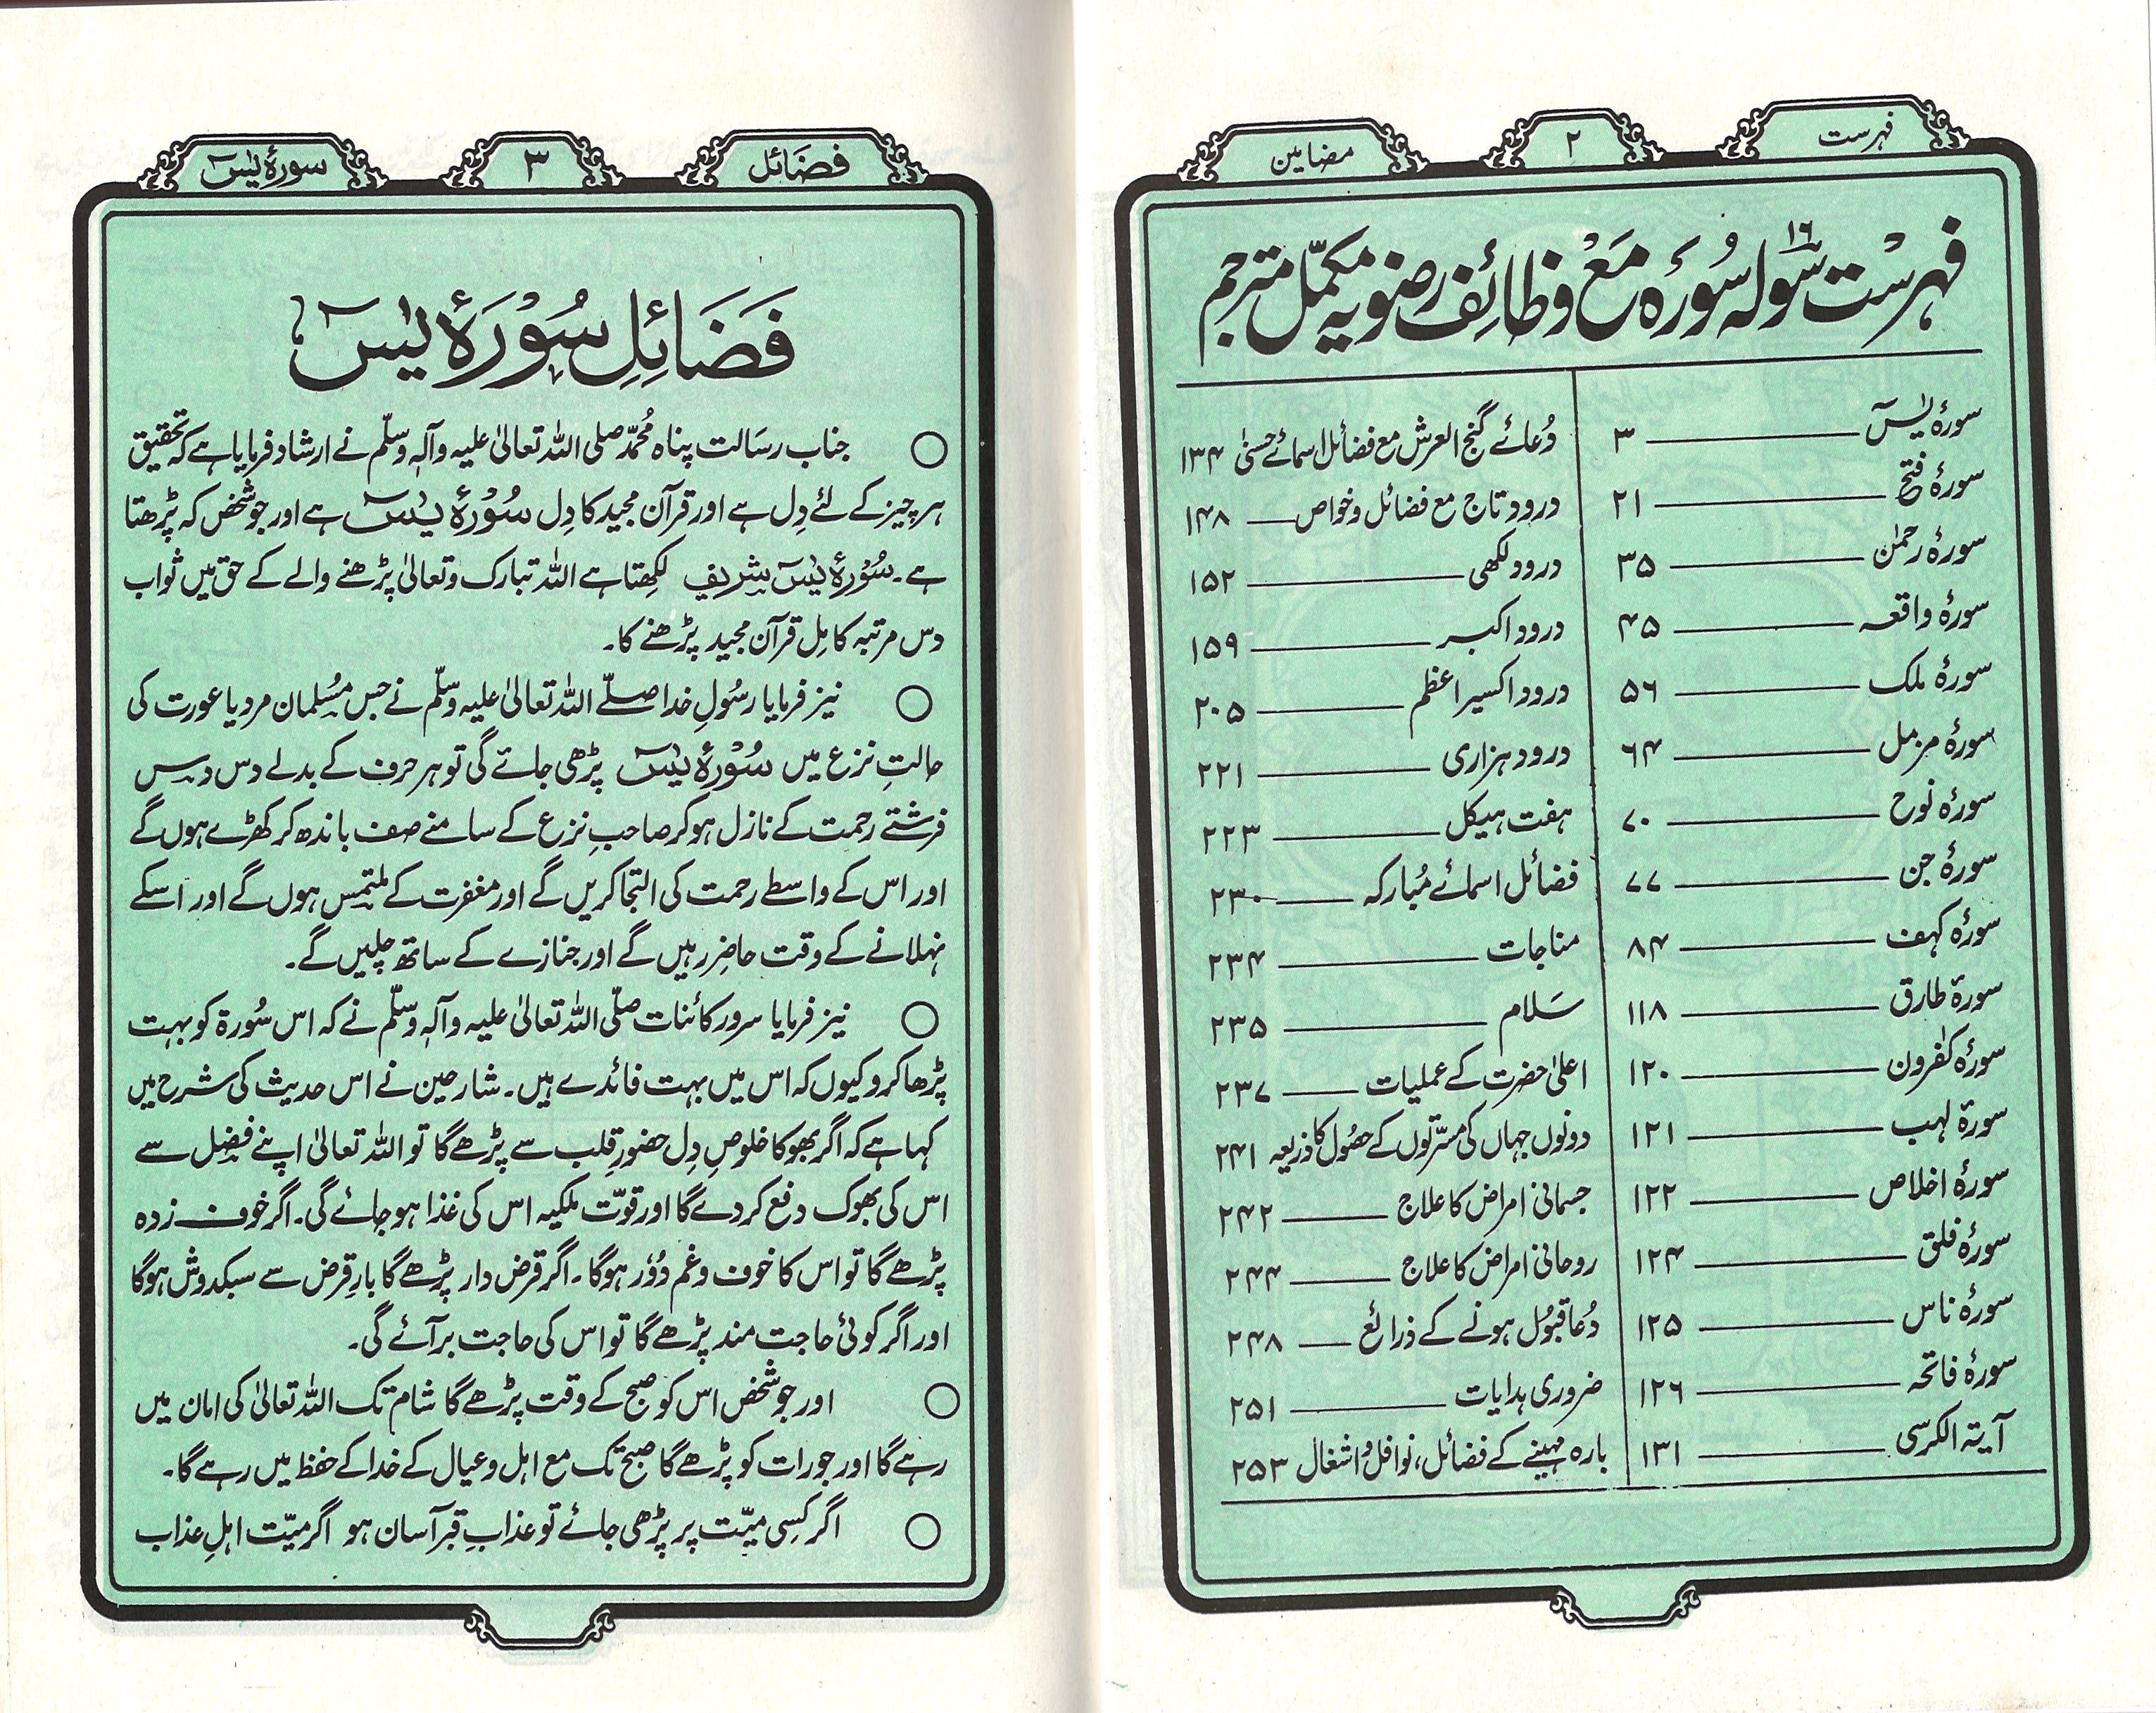 فہرست ۲ مضامین
۱۶
فہرست سولہ سُورہ مَعْ وظائِف رضویہ مکمّل مترجم
سورۂ یٰسٓ ۳
سورۂ فتح ۲۱
سورۂ رحمٰن ۳۵
سورۂ واقعہ ۴۵
سورۂ ملک ۵۶
سورۂ مزمل ۶۴
سورۂ نوح ۷۰
سورۂ جن ۷۷
سورۂ کہف ۸۴
سورۃ طارق ۱۱۸
سورۂ کٰفرون ۱۲۰
سورۃ لہب ۱۲۱
سورۂ اخلاص ۱۲۲
سورۂ فلق ۱۲۴
سورۂ ناس ۱۲۵
سورۂ فاتحہ ۱۲۶
آیتہ الکرسی ۱۳۱
دُعائے گنج العرش مع فضائل اسمائے حسنٰی ۱۳۴
درود تاج مع فضائل و خواص ۱۴۸
درود لکھی ۱۵۲
درود اکبر ۱۵۹
درود اکسیر اعظم ۲۰۵
درود ہزاری ۲۲۱
ہفت ہیکل ۲۲۳
فضائل اسمائے مُبارکہ ۲۳۰
مناجات ۲۳۴
سَلام ۲۳۵
اعلیٰ حضرت کے عملیات ۲۳۷
دونوں جہاں کی مسرّتوں کے حصُول کا ذریعہ ۲۴۱
جسمانی امراض کا علاج ۲۴۲
روحانی امراض کا علاج ۲۴۴
دُعا قبُول ہونے کے ذرائع ۲۴۸
ضروری ہدایات ۲۵۱
بارہ مہینے کے فضائل، نوافل و اشغال ۲۵۳
فضائل ۳ سورۂ یٰسٓ
فَضَائِلِ سُوْرَۂ یٰسٓ
جناب رسَالت پناہ مُحمّد صلی اللہ تعالیٰ علیہ وآلہٖ وسلّم نے ارشاد فرمایا ہے کہ تحقیق
ہر چیز کے لئے دِل ہے اور قرآن مجید کا دِل سُوْرَۂ یٰسٓ ہے اور جو شخص کہ پڑھتا
ہے۔ سُوْرَۂ یٰسٓ شریف لکھتا ہے اللہ تبارک وتعالیٰ پڑھنے والے کے حق میں ثواب
دس مرتبہ کامِل قرآن مجید پڑھنے کا۔
نیز فرمایا رسُولِ خدا صلّے اللہ تعالیٰ علیہ وسلّم نے جس مُسلمان مرد یا عورت کی
حالتِ نزع میں سُوْرَۂ یٰسٓ پڑھی جائے گی تو ہر حرف کے بدلے دس دس
فرشتے رحمت کے نازل ہو کر صاحبِ نزع کے سامنے صف باندھ کر کھڑے ہوں گے
اور اس کے واسطے رحمت کی التجا کریں گے اور مغفرت کے ملتمِس ہوں گے اور اسکے
نہلانے کے وقت حاضِر رہیں گے اور جنازے کے ساتھ چلیں گے۔
نیز فرمایا سرور کائنات صلّی اللہ تعالیٰ علیہ وآلہٖ وسلّم نے کہ اس سُورۃ کو بہت
پڑھا کرو کیوں کہ اس میں بہت فائدے ہیں۔ شارحین نے اس حدیث کی شرح میں
کہا ہے کہ اگر بھوکا خلوصِ دِل حضورِ قلب سے پڑھے گا تو اللہ تعالیٰ اپنے فضل سے
اس کی بھوک دفع کر دے گا اور قوّت ملکیہ اس کی غذا ہو جائے گی۔ اگر خوف زدہ
پڑھے گا تو اس کا خوف و غم دُوْر ہوگا۔ اگر قرض دار پڑھے گا بارِ قرض سے سبکدوش ہوگا
اور اگر کوئی حاجت مند پڑھے گا تو اس کی حاجت برآئے گی۔
اور جو شخص اس کو صبح کے وقت پڑھے گا شام تک اللہ تعالیٰ کی امان میں
رہے گا اور جو رات کو پڑھے گا صبح تک مع اہل و عیال کے خدا کے حفظ میں رہے گا۔
اگر کسِی میّت پر پڑھی جائے تو عذابِ قبر آسان ہو اگر میّت اہلِ عذاب